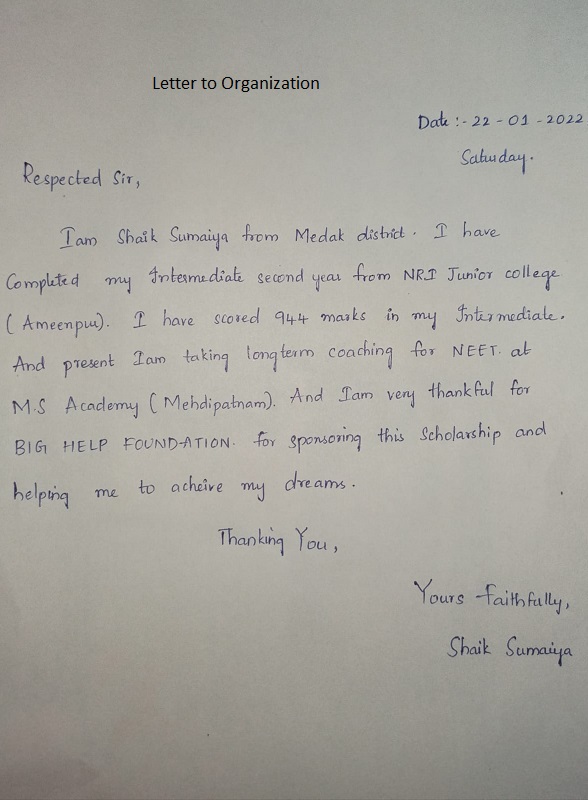 Letter to Organization
Date :- 22 - 01 - 2022
Saturday.
Respected Sir,
Iam Shaik Sumaiya from Medak district. I have
Completed my Intermediate second year from NRI Junior college
( Ameenpur). I have scored 944 marks in my Intermediate.
And present Iam taking longterm coaching for NEET. at
M.S Academy ( Mehdipatnam). And Iam very thankful for
BIG HELP FOUNDATION. for sponsoring this Scholarship and
helping me to acheive my dreams.
Thanking You,
Yours faithfully,
Shaik Sumaiya